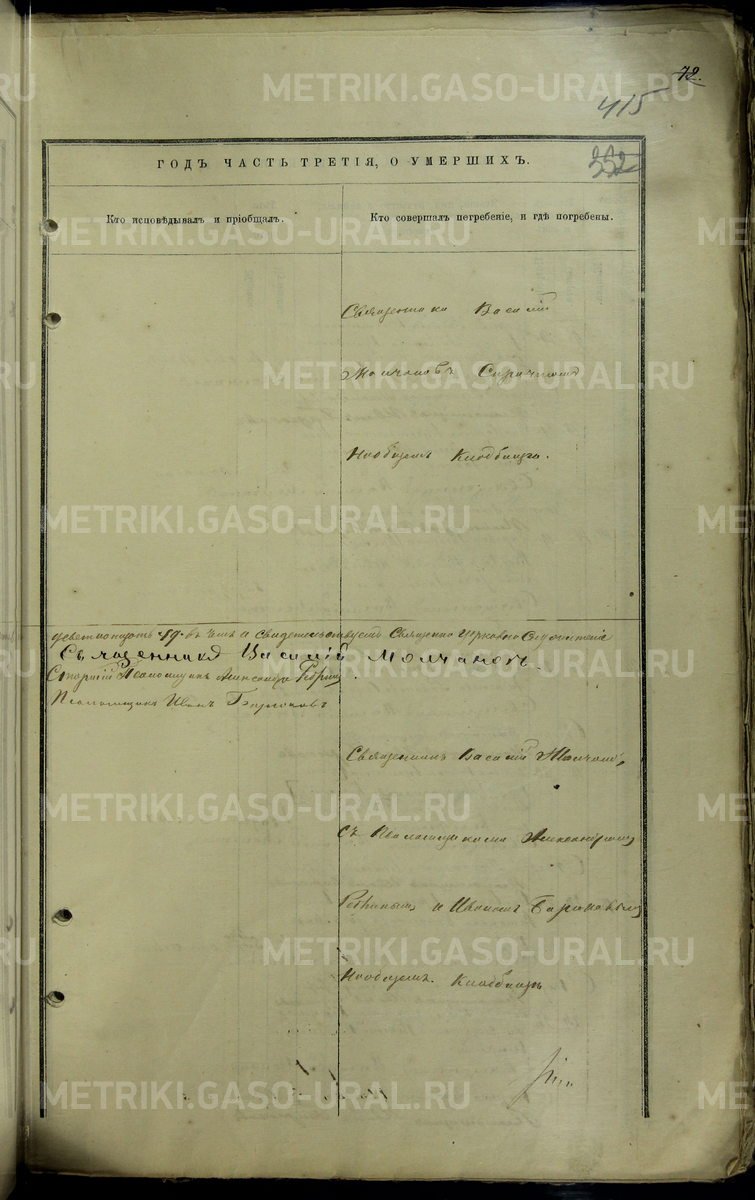 72.
415
332
ГОДЪ ЧАСТЬ ТРЕТІЯ, О УМЕРШИХЪ.
Кто исповѣдывалъ и пріобщалъ.
Кто совершалъ погребеніе, и гдѣ погребены.
Священникъ Василій
Молчановъ
Наобщемъ Кладбищѣ.
девятнадцать 19. въ чемъ и свидѣтельствуетъ Священно церковно Служители
Священникъ Василій Молчановъ.
Старшій Псаломщикъ Александръ
Псаломщикъ Иванъ
Священникъ Василій Молчановъ,
Съ Псаломщиками Александромъ
и Иваномъ
Наобщемъ Кладбищѣ
METRIKI.GASO-URAL.RU